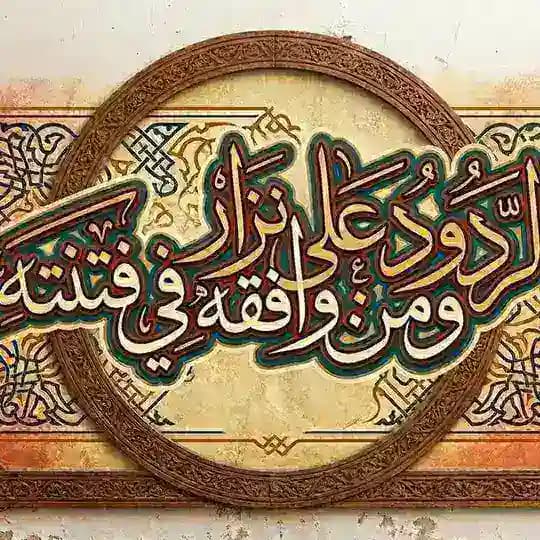 الرُّدُودُ عَلَى نِزَار
وَمَن وَافَقَهُ فِي فِتْنَتِهِ